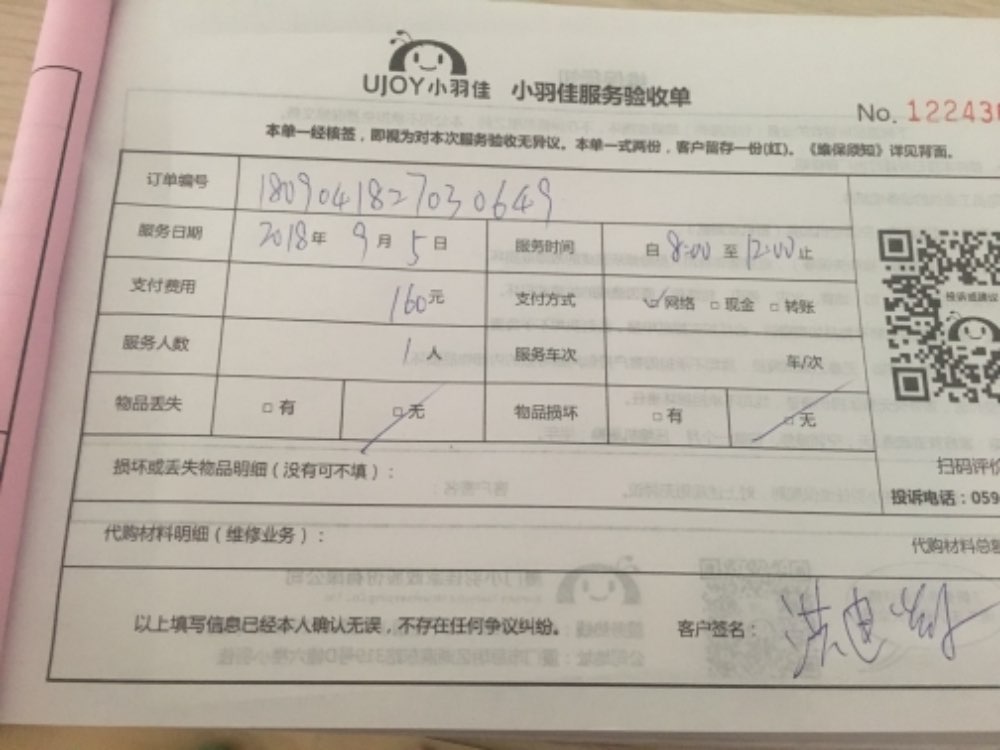 UJOY小羽佳 小羽佳服务验收单
No. 122436
本单一经核签，即视为对本次服务验收无异议。本单一式两份，客户留存一份(红)。《维保须知》详见背面。
订单编号 180904182703 0649
服务日期 2018年 9月 5日 服务时间 自8:00至12:00止
支付费用 160元 支付方式 ☑网络 □现金 □转账
服务人数 1人 服务车次 车/次
物品丢失 □有 ☑无 物品损坏 □有 ☑无
投诉或建议
损坏或丢失物品明细（没有可不填）：
扫码评价
投诉电话：059
代购材料明细（维修业务）：
代购材料总额
以上填写信息已经本人确认无误，不存在任何争议纠纷。 客户签名：